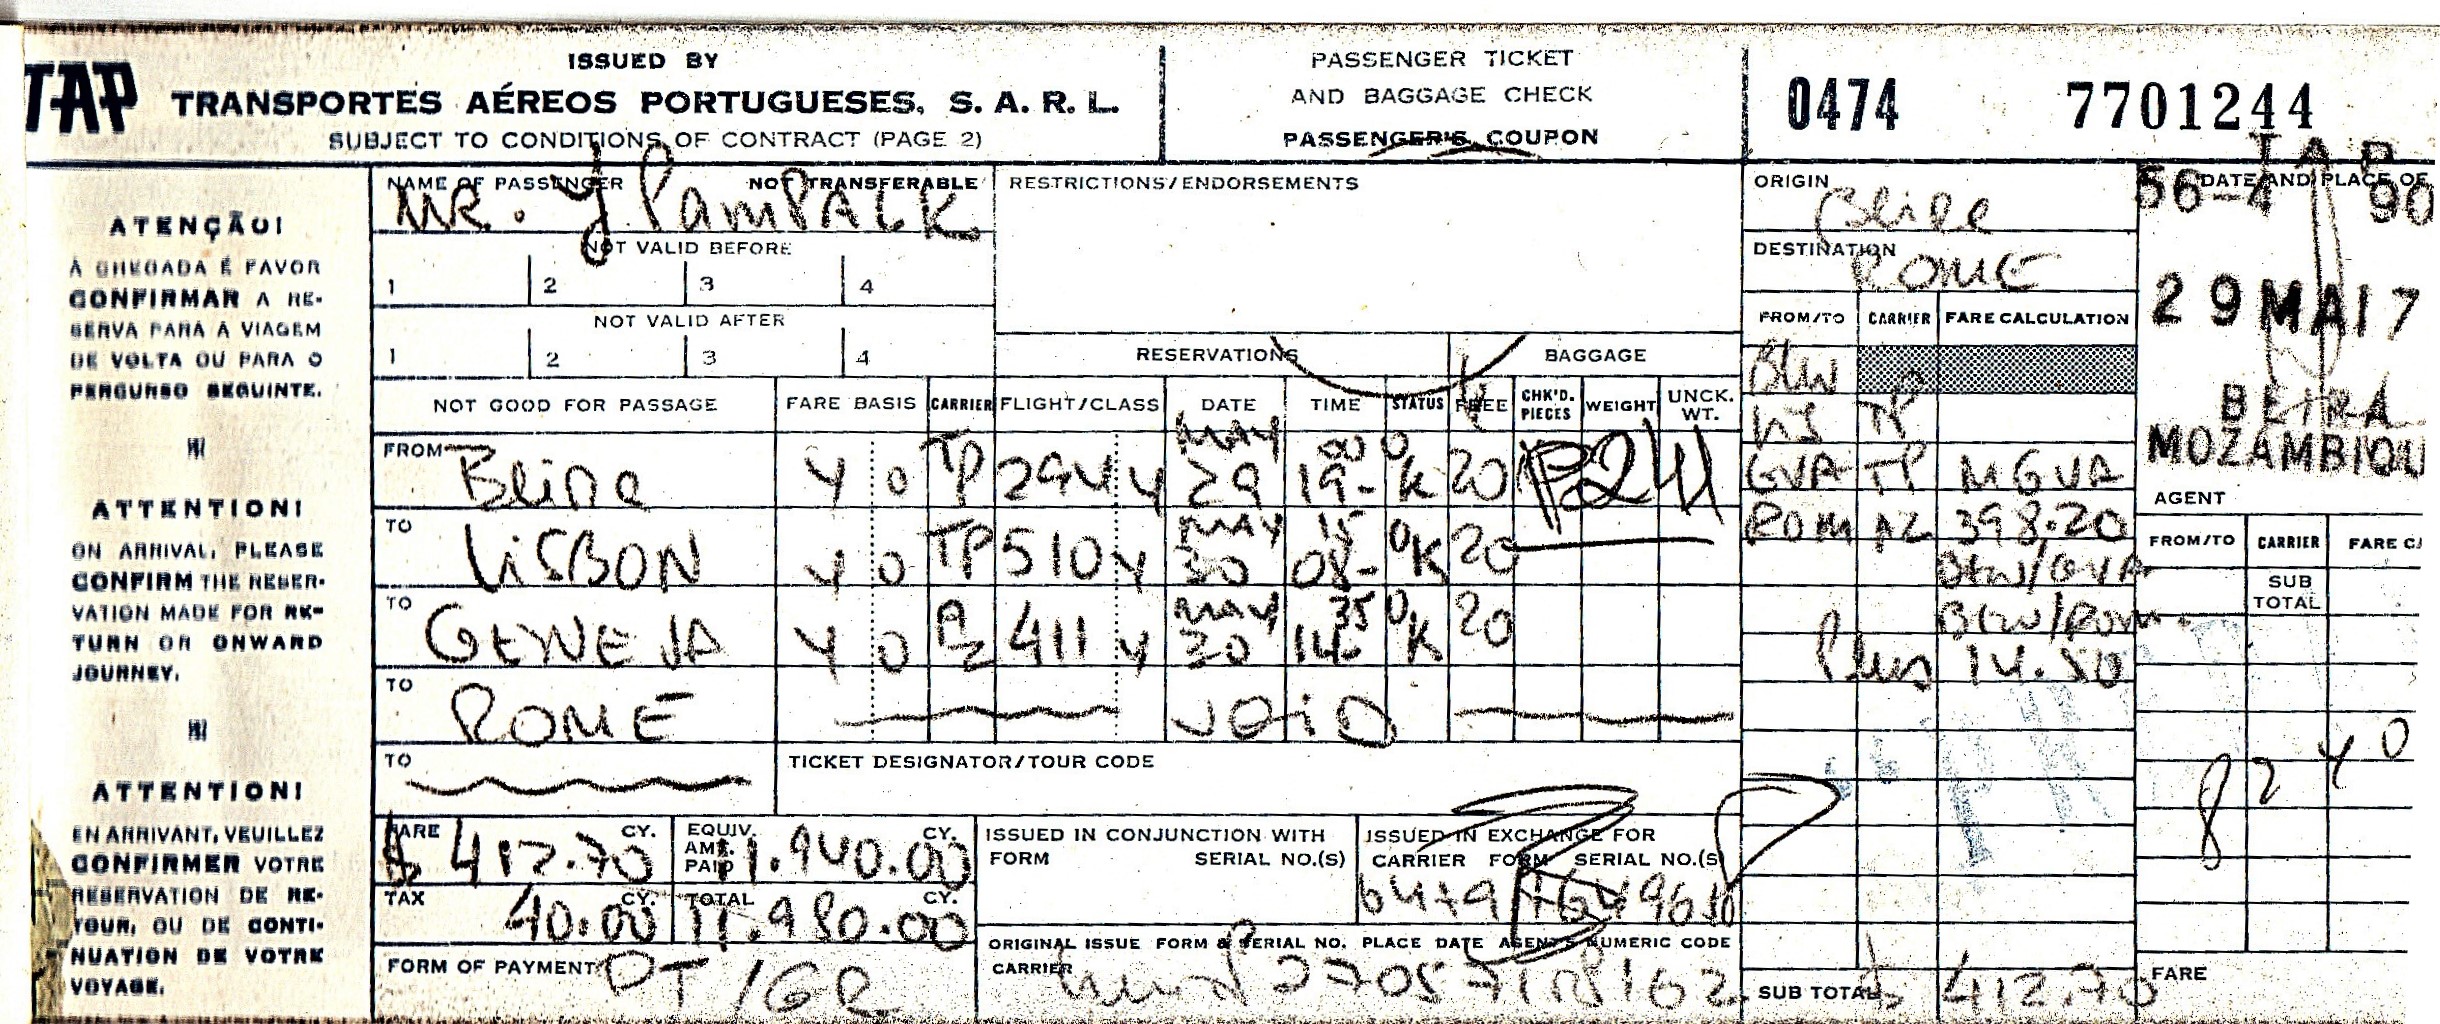 TAP
ISSUED BY
TRANSPORTES AÉREOS PORTUGUESES, S. A. R. L.
SUBJECT TO CONDITIONS OF CONTRACT (PAGE 2)
PASSENGER TICKET
AND BAGGAGE CHECK
PASSENGER'S COUPON
0474 7701244
ATENÇÃO!
À CHEGADA É FAVOR
CONFIRMAR A RE-
SERVA PARA A VIAGEM
DE VOLTA OU PARA O
PERCURSO SEGUINTE.
ATTENTION!
ON ARRIVAL, PLEASE
CONFIRM THE RESER-
VATION MADE FOR RE-
TURN OR ONWARD
JOURNEY.
ATTENTION!
EN ARRIVANT, VEUILLEZ
CONFIRMER VOTRE
RESERVATION DE RE-
TOUR, OU DE CONTI-
NUATION DE VOTRE
VOYAGE.
NAME OF PASSENGER NOT TRANSFERABLE
MR. J PAMPALK
NOT VALID BEFORE
1 2 3 4
NOT VALID AFTER
1 2 3 4
RESTRICTIONS/ENDORSEMENTS
RESERVATIONS BAGGAGE
NOT GOOD FOR PASSAGE FARE BASIS CARRIER FLIGHT/CLASS DATE TIME STATUS FREE CHK'D. PIECES WEIGHT UNCK. WT.
FROM Beira Y O TP 294 Y MAY 29 19-00 OK 20 P241
TO LISBON Y O TP 510 Y MAY 30 08-15 OK 20
TO GENEVA Y O AZ 411 Y MAY 30 14-35 OK 20
TO ROME VOID
TO
TICKET DESIGNATOR/TOUR CODE
FARE CY. $ 412.70
EQUIV. AMT. PAID CY. 11.940.00
TAX CY. 40.00
TOTAL CY. 11.980.00
FORM OF PAYMENT PT/GR
ISSUED IN CONJUNCTION WITH
FORM SERIAL NO.(S)
ISSUED IN EXCHANGE FOR
CARRIER FORM SERIAL NO.(S)
ORIGINAL ISSUE FORM & SERIAL NO. PLACE DATE AGENT'S NUMERIC CODE
CARRIER
ORIGIN
Beira
DESTINATION
ROME
FROM/TO CARRIER FARE CALCULATION
BEW
LIS TP
GVA TP M GVA
ROM AZ 398.20
BEW/GVA
BEW/ROM
Plus 14.50
SUB TOTAL $ 412.70
TAP
DATE AND PLACE OF
56-4 90
29 MAI 7
BEIRA
MOZAMBIQU
AGENT
FROM/TO CARRIER FARE CA
SUB
TOTAL
FARE